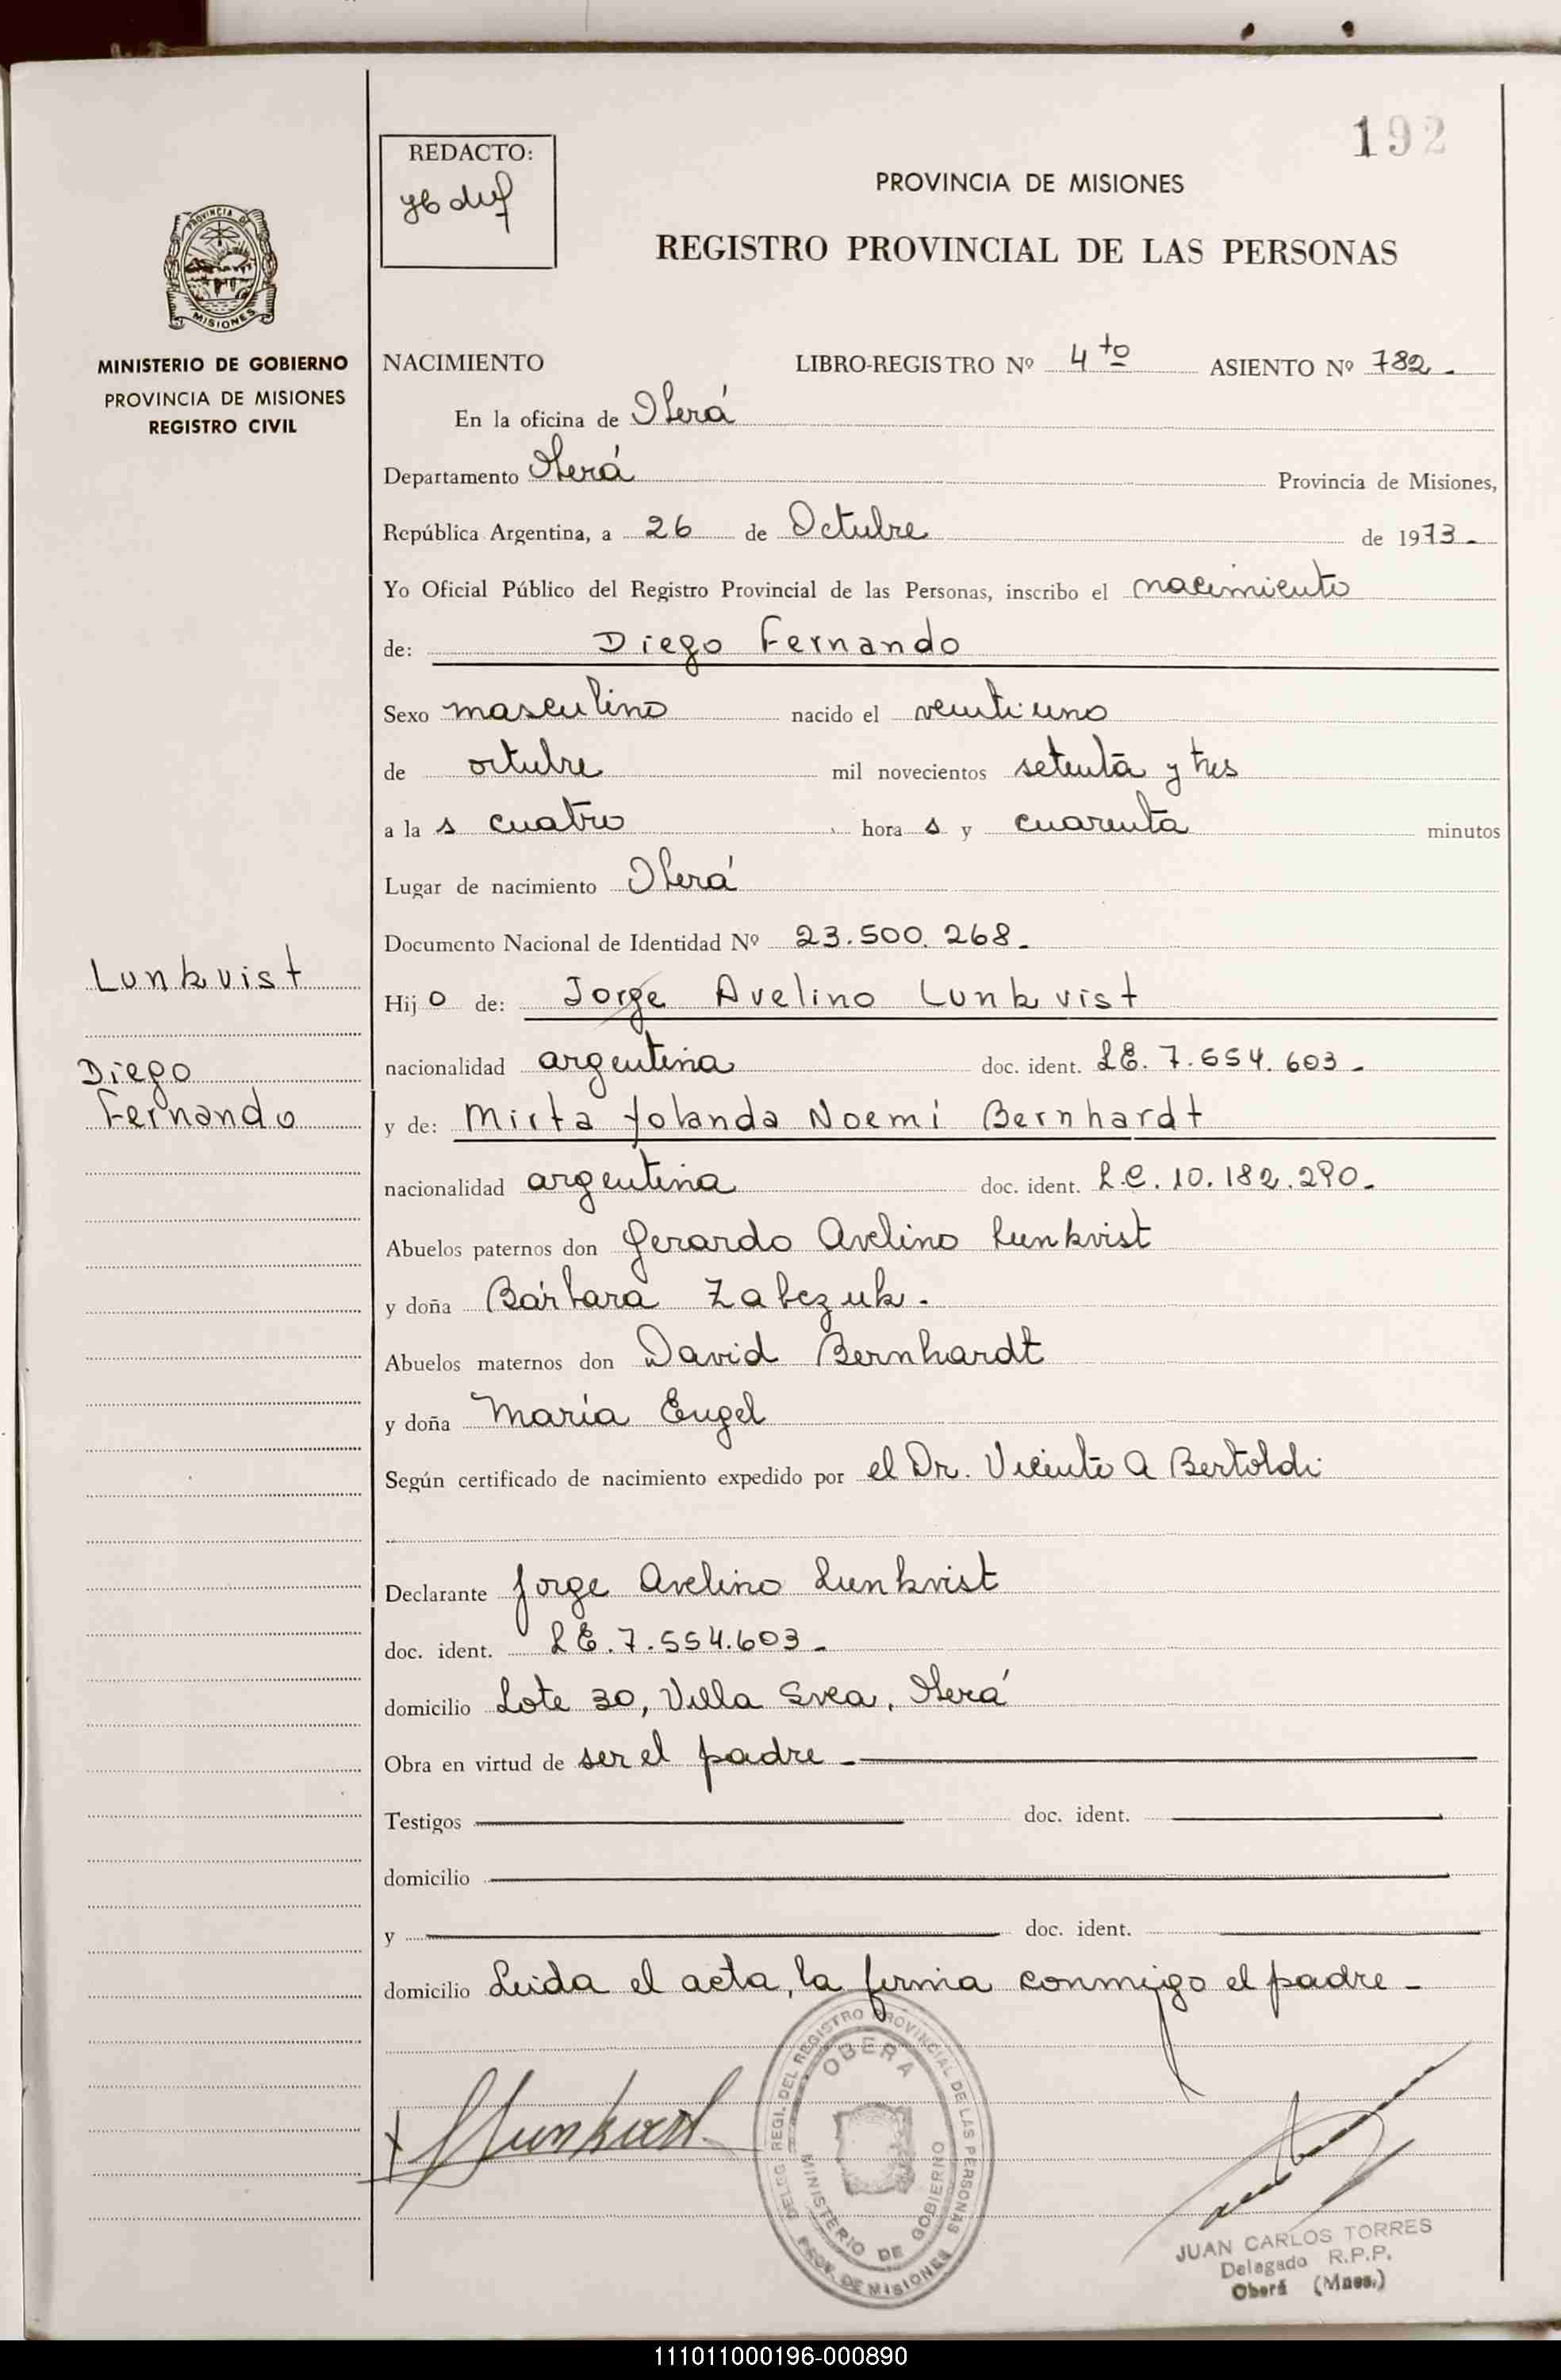 192
REDACTO:
PROVINCIA DE MISIONES
REGISTRO PROVINCIAL DE LAS PERSONAS
PROVINCIA DE MISIONES
MINISTERIO DE GOBIERNO
PROVINCIA DE MISIONES
REGISTRO CIVIL
NACIMIENTO LIBRO-REGISTRO Nº 4to ASIENTO Nº 782.
En la oficina de Oberá
Departamento Oberá Provincia de Misiones,
República Argentina, a 26 de Octubre de 1973.-
Yo Oficial Público del Registro Provincial de las Personas, inscribo el nacimiento
de: Diego Fernando
Sexo masculino nacido el veintiuno
de octubre mil novecientos setenta y tres
a la s cuatro hora s y cuarenta minutos
Lugar de nacimiento Oberá
Documento Nacional de Identidad Nº 23.500.268.
Lunkvist
Hij o de: Jorge Avelino Lunkvist
Diego
Fernando
nacionalidad argentina doc. ident. L.E. 7.554.603.-
y de: Mirta Yolanda Noemí Bernhardt
nacionalidad argentina doc. ident. L.C. 10.182.290.
Abuelos paternos don Gerardo Avelino Lunkvist
y doña Bárbara Zabczuk.
Abuelos maternos don David Bernhardt
y doña María Engel
Según certificado de nacimiento expedido por el Dr. Vicente A Bertoldi
Declarante Jorge Avelino Lunkvist
doc. ident. L.E. 7.554.603.-
domicilio Lote 30, Villa Svea, Oberá
Obra en virtud de ser el padre.-
Testigos doc. ident.
domicilio
y doc. ident.
domicilio Leida el acta, la firma conmigo el padre-
DELEG. REGI. DEL REGISTRO PROVINCIAL DE LAS PERSONAS
OBERA
MINISTERIO DE GOBIERNO
PROV. DE MISIONES
JUAN CARLOS TORRES
Delegado R.P.P.
Oberá (Mnes.)
111011000196-000890